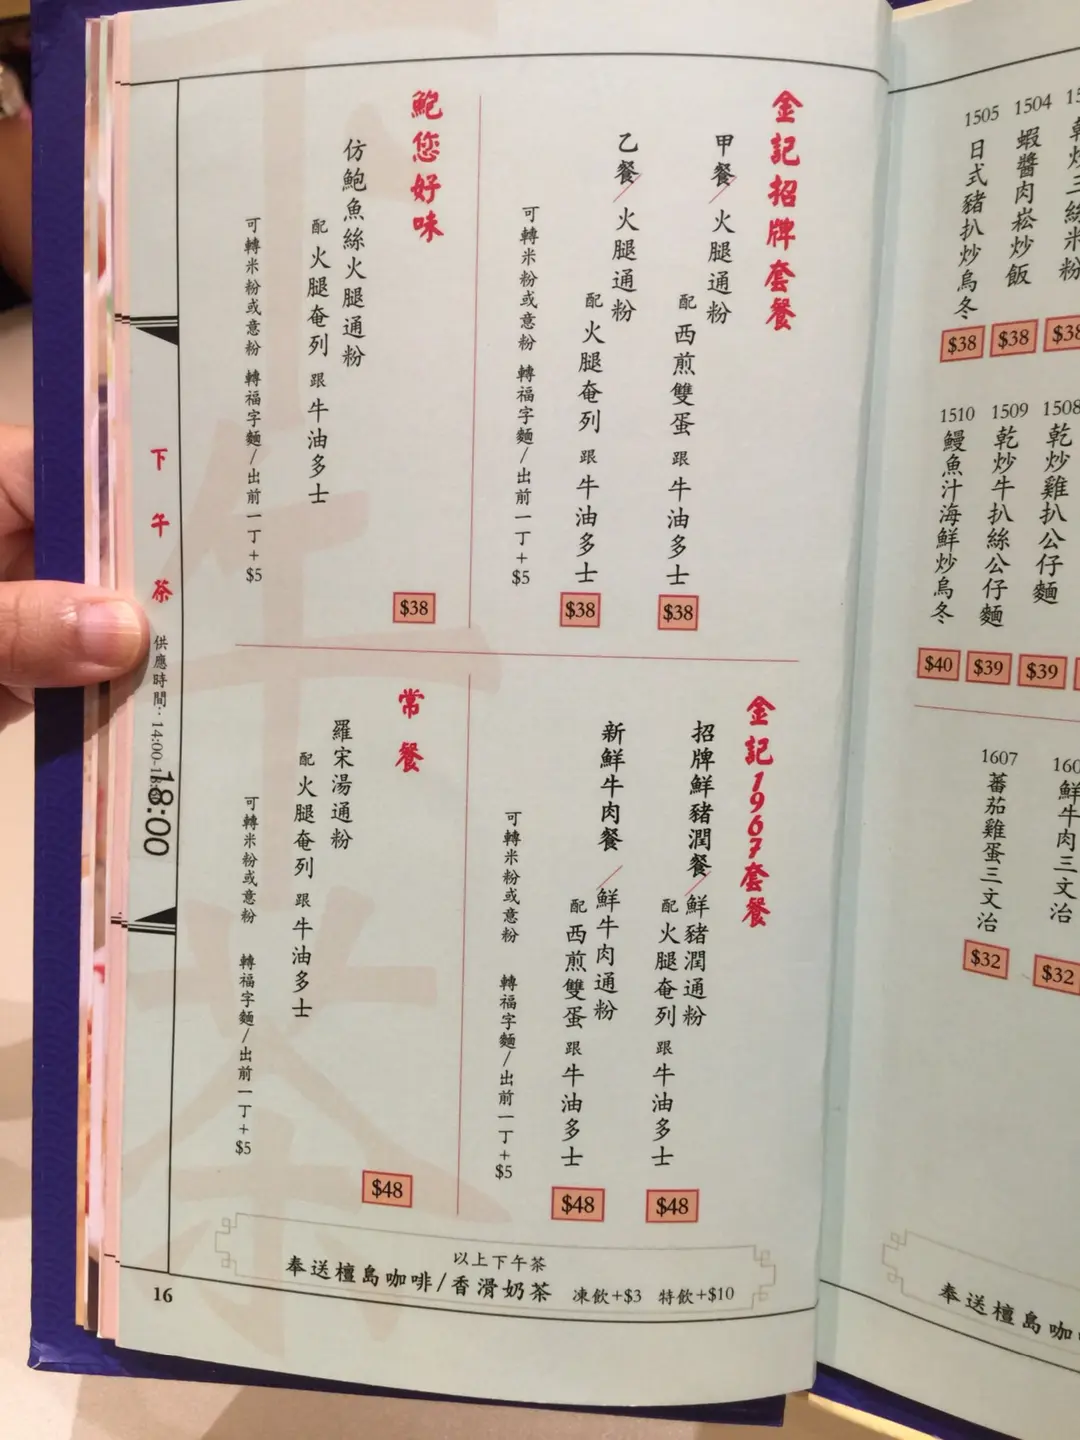 金記招牌套餐
甲餐/火腿通粉
配 西煎雙蛋 跟 牛油多士
$38
乙餐/火腿通粉
配 火腿奄列 跟 牛油多士
$38
可轉米粉或意粉 轉福字麵/出前一丁+$5
鮑您好味
仿鮑魚絲火腿通粉
配 火腿奄列 跟 牛油多士
可轉米粉或意粉 轉福字麵/出前一丁+$5
$38
金記1967套餐
招牌鮮豬潤餐/鮮豬潤通粉
配 火腿奄列 跟 牛油多士
$48
新鮮牛肉餐/鮮牛肉通粉
配 西煎雙蛋 跟 牛油多士
$48
可轉米粉或意粉 轉福字麵/出前一丁+$5
常餐
羅宋湯通粉
配 火腿奄列 跟 牛油多士
可轉米粉或意粉 轉福字麵/出前一丁+$5
$48
以上下午茶
奉送檀島咖啡/香滑奶茶 凍飲+$3 特飲+$10
下午茶 供應時間：14:00-18:00
16
乾炒三絲米粉
$38
1504 蝦醬肉崧炒飯
$38
1505 日式豬扒炒烏冬
$38
1508 乾炒雞扒公仔麵
$39
1509 乾炒牛扒絲公仔麵
$39
1510 鰻魚汁海鮮炒烏冬
$40
鮮牛肉三文治
$32
1607 蕃茄雞蛋三文治
$32
奉送檀島咖